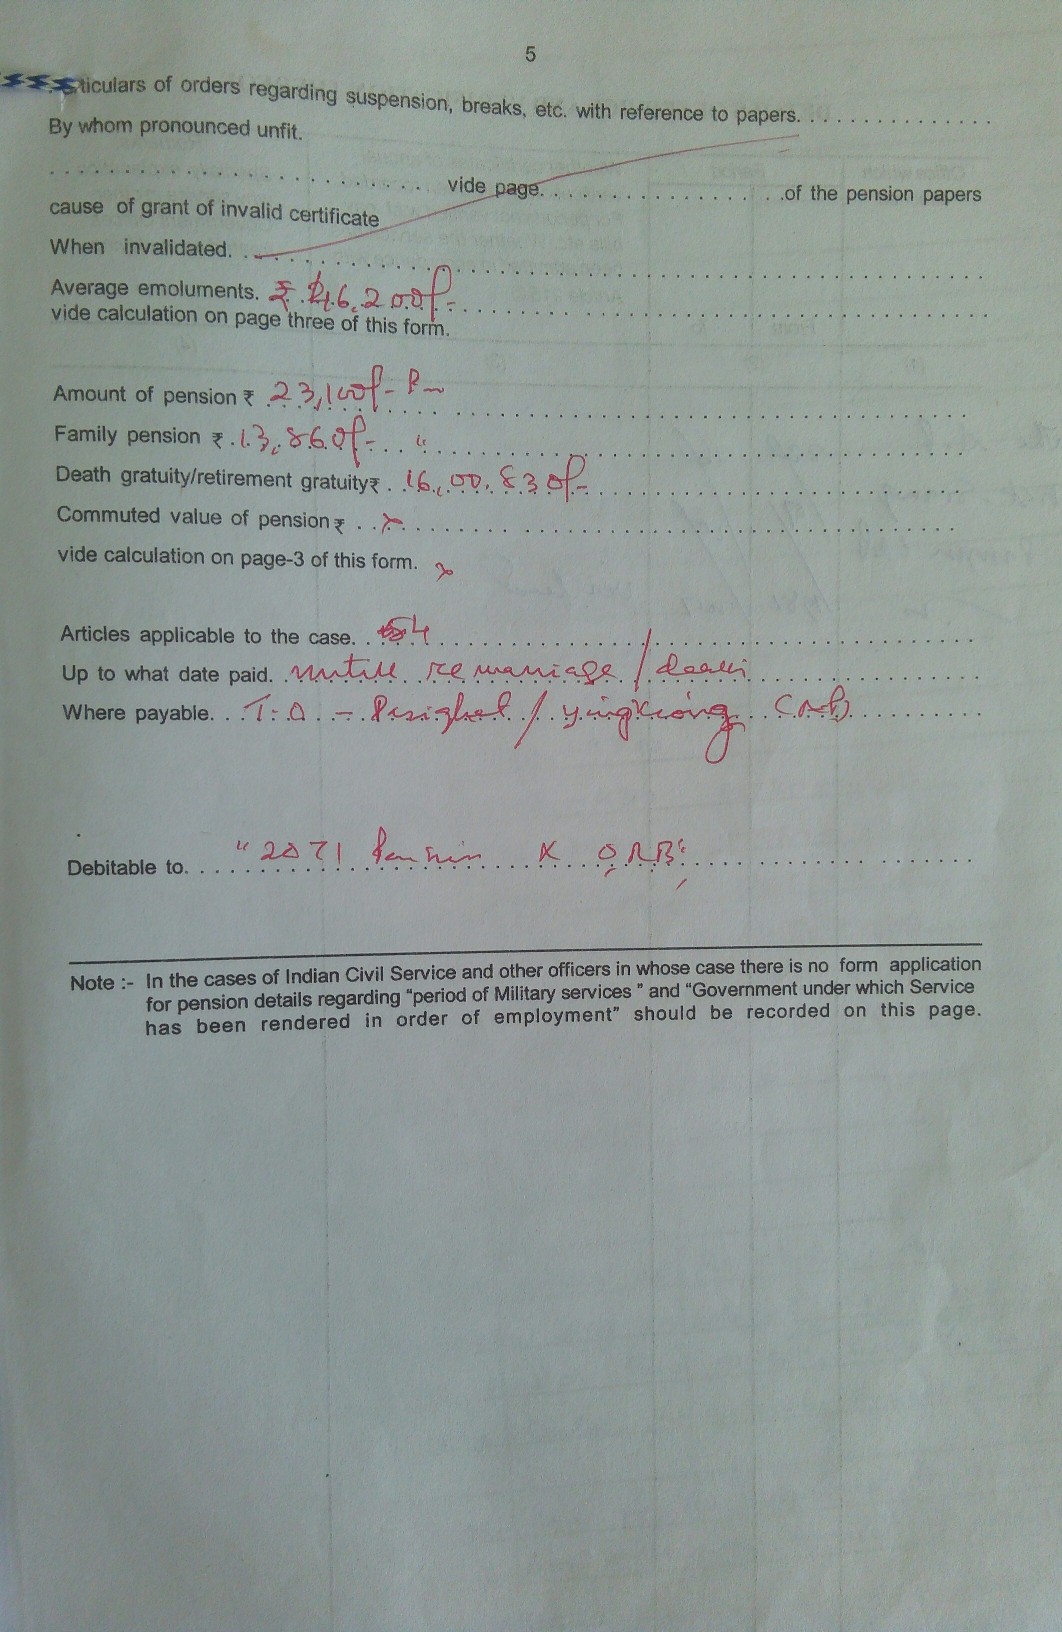 5
ticulars of orders regarding suspension, breaks, etc. with reference to papers. . . . . . . . . . . . . . .
By whom pronounced unfit.
. . . . . . . . . . . . . . . . . . . . . . . . . vide page. . . . . . . . . . . . . . . . . . of the pension papers
cause of grant of invalid certificate
When invalidated. . . . . . . . . . . . . . . .
Average emoluments. ₹ 46,200/-
vide calculation on page three of this form.
Amount of pension ₹ 23,100/- Pm
Family pension ₹ 13,860/- "
Death gratuity/retirement gratuity₹ 16,00,830/-
Commuted value of pension ₹ . . x
vide calculation on page-3 of this form. x
Articles applicable to the case. 54
Up to what date paid. untill remarriage / death
Where payable. T.O - Pasighat / Yingkiong
Debitable to. "2071 Pension & ORB"
Note :- In the cases of Indian Civil Service and other officers in whose case there is no form application
for pension details regarding "period of Military services " and "Government under which Service
has been rendered in order of employment" should be recorded on this page.